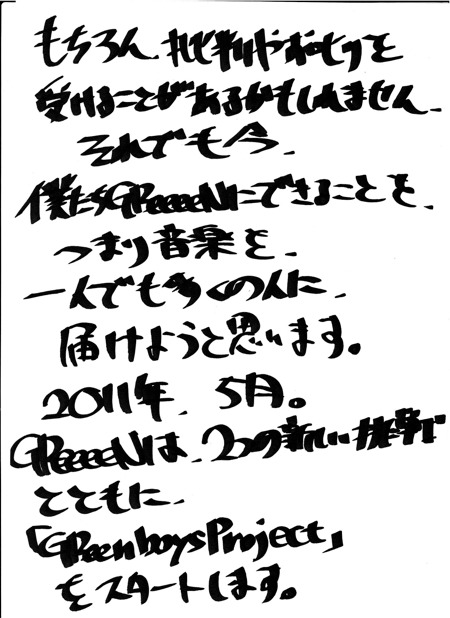 もちろん、批判やお叱りを
受けることがあるかもしれません、
それでも今、
僕たちGReeeeNにできることを、
つまり音楽を、
一人でも多くの人に、
届けようと思います。
2011年、5月。
GReeeeNは、2つの新しい挑戦
とともに、
「GReen boys Project」
をスタートします。